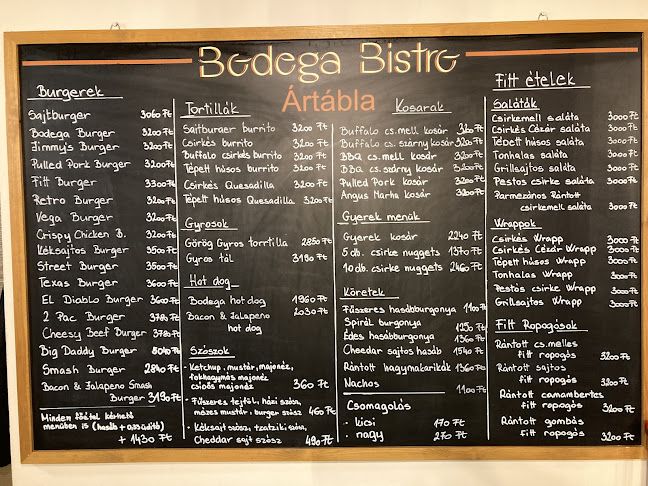 Bodega Bistro
Ártábla
Burgerek
Sajtburger 3060 Ft
Bodega Burger 3200 Ft
Jimmy's Burger 3200 Ft
Pulled Pork Burger 3200 Ft
Fitt Burger 3300 Ft
Retro Burger 3200 Ft
Vega Burger 3200 Ft
Crispy Chicken B. 3200 Ft
Kéksajtos Burger 3500 Ft
Street Burger 3500 Ft
Texas Burger 3600 Ft
EL Diablo Burger 3600 Ft
2 Pac Burger Ft
Cheesy Beef Burger Ft
Big Daddy Burger Ft
Smash Burger 2840 Ft
Bacon & Jalapeno Smash
Burger 3190 Ft
Minden főétel kérhető
menüben is (hasáb + )
+ 1430 Ft
Tortillák
Sajtburger burrito 3200 Ft
Csirkés burrito 3200 Ft
Buffalo csirkés burrito 3200 Ft
Tépett húsos burrito 3200 Ft
Csirkés Quesadilla 3200 Ft
Tépett húsos Quesadilla 3200 Ft
Gyrosok
Görög Gyros torrtilla 2850 Ft
Gyros tál 3180 Ft
Hot dog
Bodega hot dog 1960 Ft
Bacon & Jalapeno 2030 Ft
hot dog
Szószok
- Ketchup, mustár, majonéz,
fokhagymás majonéz
csípős majonéz 360 Ft
- Fűszeres tejföl, házi szósz,
mézes mustár, burger szósz 460 Ft
- Kéksajt szósz, tzatziki szósz,
Cheddar sajt szósz 490 Ft
Kosarak
Buffalo cs.mell kosár 3200 Ft
Buffalo cs.szárny kosár 3200 Ft
BBQ cs.mell kosár 3200 Ft
BBQ cs.szárny kosár 3200 Ft
Pulled Pork kosár 3200 Ft
Angus Marha kosár 3200 Ft
Gyerek menük
Gyerek kosár 2240 Ft
5 db. csirke nuggets 1370 Ft
10 db. csirke nuggets 2460 Ft
Köretek
Fűszeres hasábburgonya 1100 Ft
Spirál burgonya 1250 Ft
Édes hasábburgonya 1360 Ft
Cheedar sajtos hasáb 1540 Ft
Rántott hagymakarikák 1360 Ft
Nachos 1100 Ft
Csomagolás
- kicsi 170 Ft
- nagy 270 Ft
Fitt ételek
Saláták
Csirkemell saláta 3000 Ft
Csirkés Cézár saláta 3000 Ft
Tépett húsos saláta 3000 Ft
Tonhalas saláta 3000 Ft
Grillsajtos saláta 3000 Ft
Pestos csirke saláta 3000 Ft
Parmezános Rántott
csirkemell saláta 3000 Ft
Wrappok
Csirkés Wrapp 3000 Ft
Csirkés Cézár Wrapp 3000 Ft
Tépett húsos Wrapp 3000 Ft
Tonhalas Wrapp 3000 Ft
Pestos csirke Wrapp 3000 Ft
Grillsajtos Wrapp 3000 Ft
Fitt Ropogósok
Rántott cs.melles
fitt ropogós 3200 Ft
Rántott sajtos
fitt ropogós 3200 Ft
Rántott camambertes
fitt ropogós 3200 Ft
Rántott gombás
fitt ropogós 3200 Ft